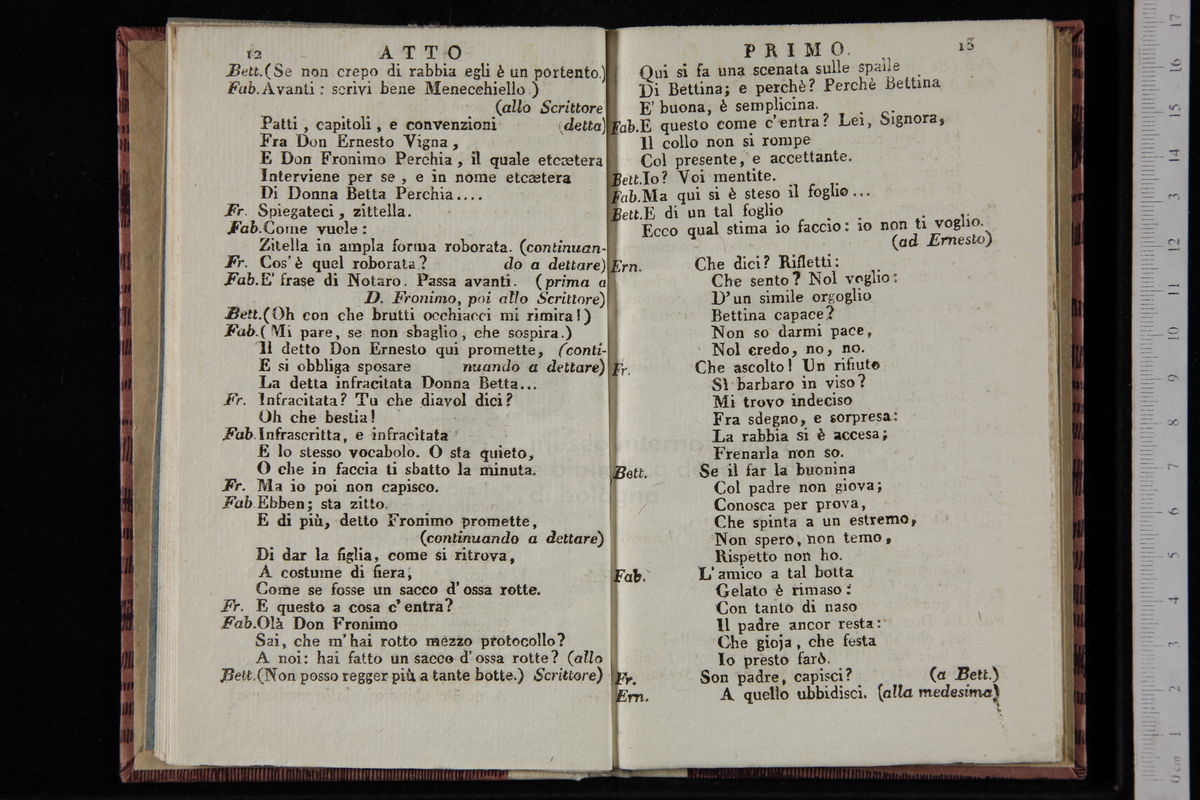 12 ATTO
Bett.(Se non crepo di rabbia egli è un portento.)
Fab.Avanti: scrivi bene Menecehiello.)
(allo Scrittore
Patti, capitoli, e convenzioni (detta)
Fra Don Ernesto Vigna,
E Don Fronimo Perchia, il quale etcætera
Interviene per se, e in nome etcætera
Di Donna Betta Perchia....
Fr. Spiegateci, zittella.
Fab.Come vuole:
Zitella in ampla forma roborata. (continuan-
Fr. Cos'è quel roborata? do a dettare)
Fab.E' frase di Notaro. Passa avanti. (prima a
D. Fronimo, poi allo Scrittore)
Bett.(Oh con che brutti occhiacci mi rimira!)
Fab.(Mi pare, se non sbaglio, che sospira.)
Il detto Don Ernesto qui promette, (conti-
E si obbliga sposare nuando a dettare)
La detta infracitata Donna Betta...
Fr. Infracitata? Tu che diavol dici?
Oh che bestia!
Fab.Infrascritta, e infracitata
E lo stesso vocabolo. O sta quieto,
O che in faccia ti sbatto la minuta.
Fr. Ma io poi non capisco.
Fab.Ebben; sta zitto.
E di più, detto Fronimo promette,
(continuando a dettare)
Di dar la figlia, come si ritrova,
A costume di fiera,
Come se fosse un sacco d'ossa rotte.
Fr. E questo a cosa c'entra?
Fab.Olà Don Fronimo
Sai, che m'hai rotto mezzo protocollo?
A noi: hai fatto un sacco d'ossa rotte? (allo
Bett.(Non posso regger più a tante botte.) Scrittore)
PRIMO. 13
Qui si fa una scenata sulle spalle
Di Bettina; e perchè? Perchè Bettina
E' buona, è semplicina.
Fab.E questo come c'entra? Lei, Signora,
Il collo non si rompe
Col presente, e accettante.
Bett.Io? Voi mentite.
Fab.Ma qui si è steso il foglio...
Bett.E di un tal foglio
Ecco qual stima io faccio: io non ti voglio.
(ad Ernesto)
Ern. Che dici? Rifletti:
Che sento? Nol voglio:
D'un simile orgoglio
Bettina capace?
Non so darmi pace,
Nol credo, no, no.
Fr. Che ascolto! Un rifiuto
Sì barbaro in viso?
Mi trovo indeciso
Fra sdegno, e sorpresa:
La rabbia si è accesa;
Frenarla non so.
Bett. Se il far la buonina
Col padre non giova;
Conosca per prova,
Che spinta a un estremo,
Non spero, non temo,
Rispetto non ho.
Fab. L'amico a tal botta
Gelato è rimaso:
Con tanto di naso
Il padre ancor resta:
Che gioja, che festa
Io presto farò.
Fr. Son padre, capisci? (a Bett.)
Ern. A quello ubbidisci. (alla medesima)